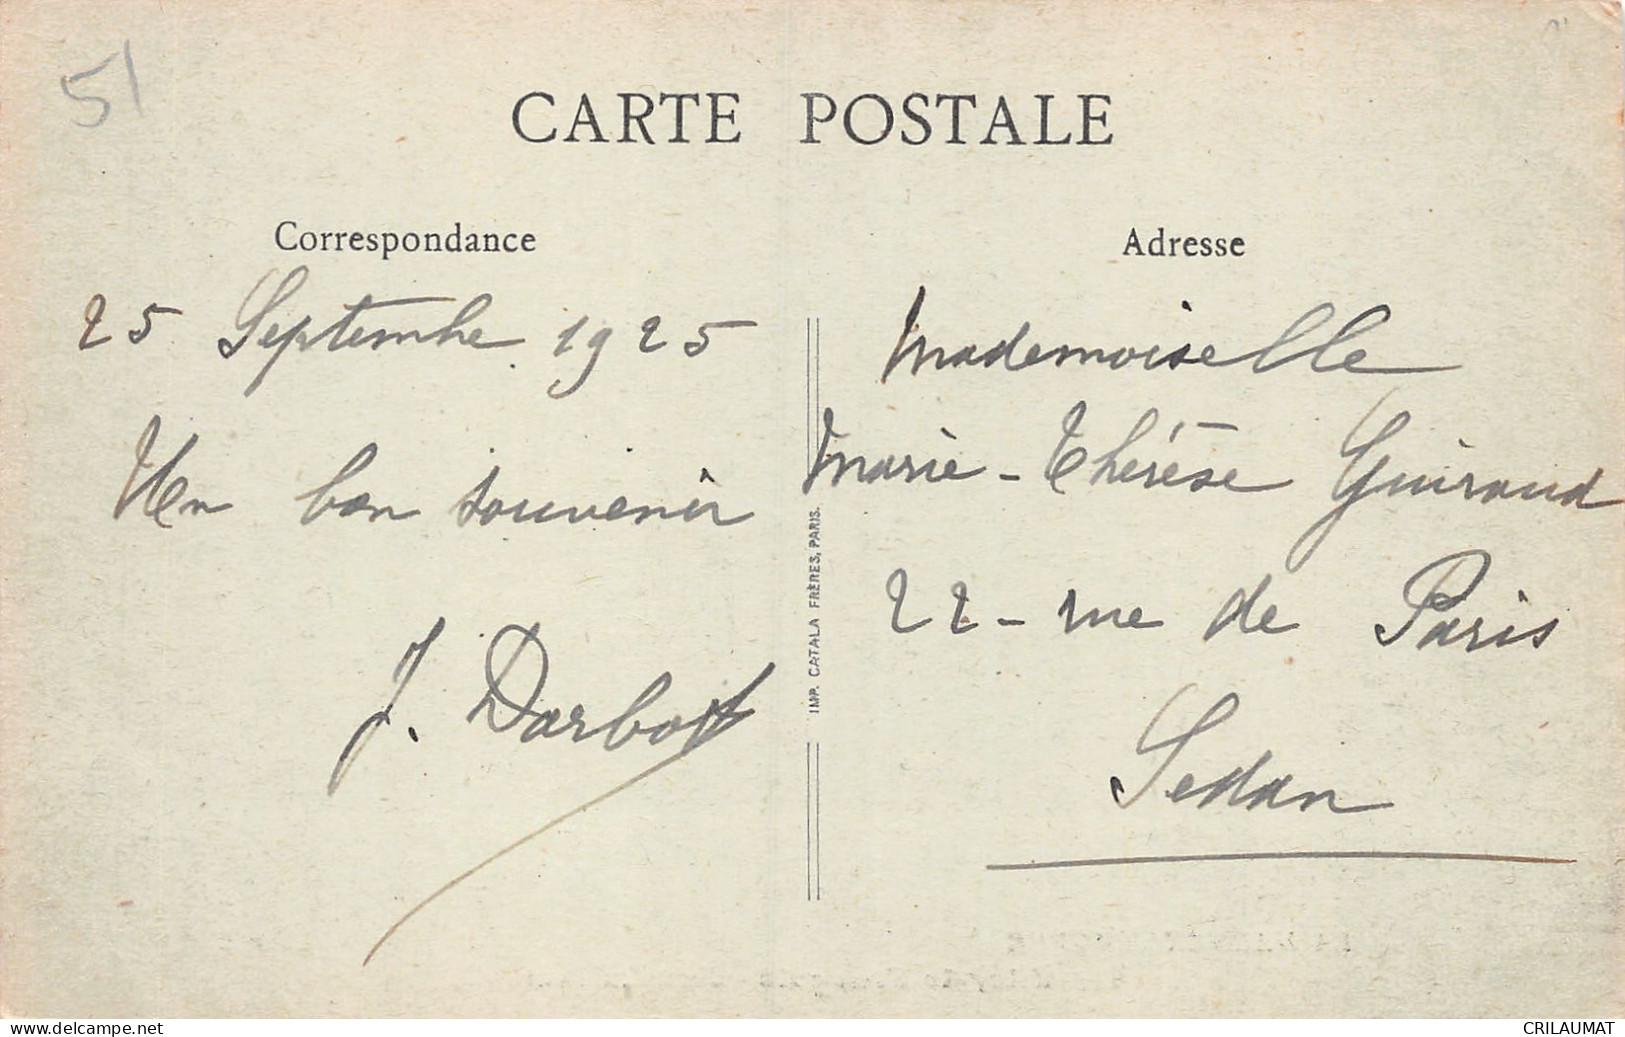 51
CARTE POSTALE
Correspondance
25 Septembre 1925
Un bon souvenir
J. Darbot
IMP. CATALA FRÈRES, PARIS.
Adresse
Mademoiselle
Marie-Thérèse Guiraud
22 - rue de Paris
Sedan
www.delcampe.net
CRILAUMAT